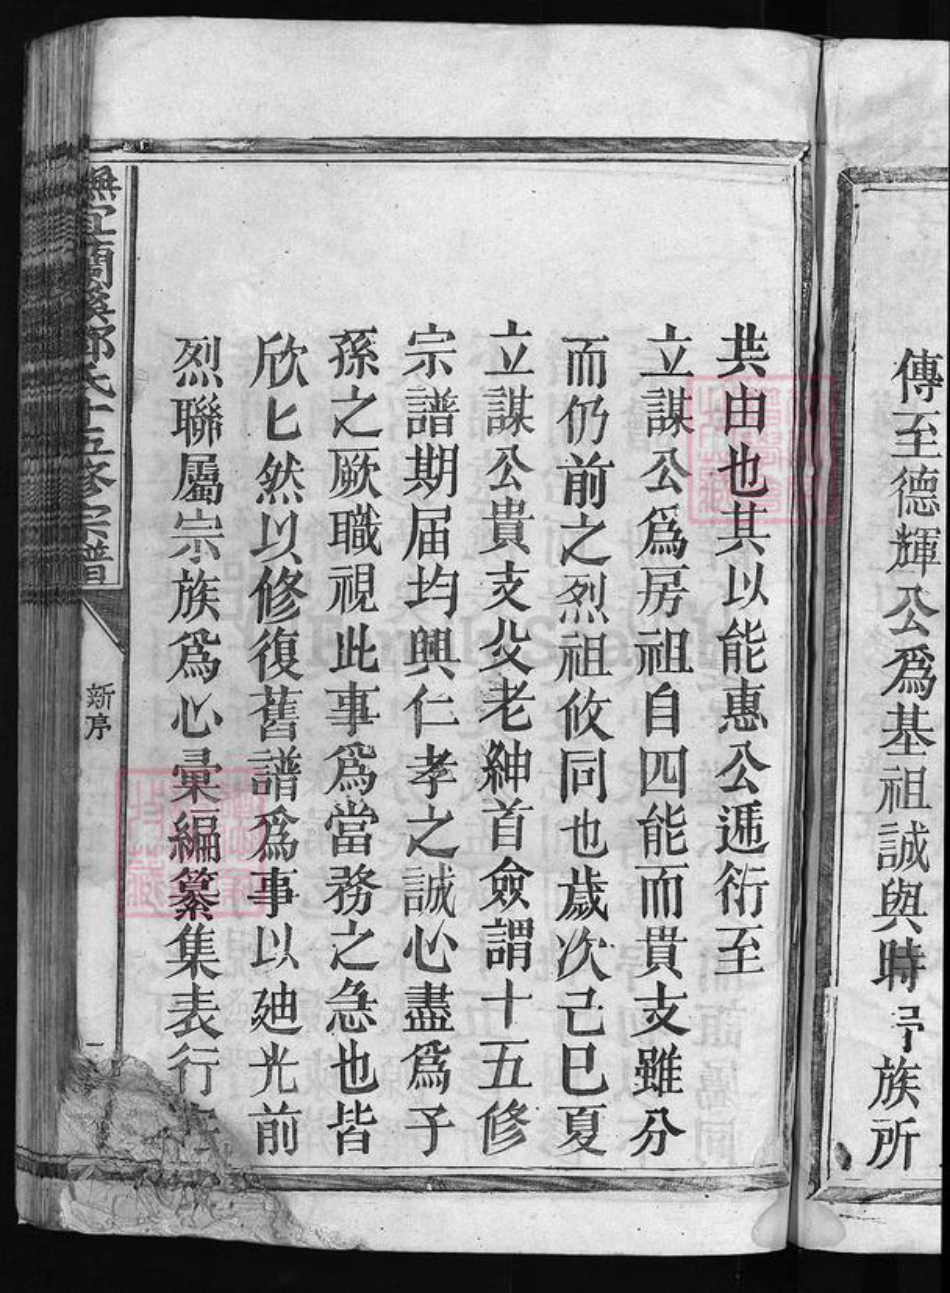 傳至德輝公爲基祖誠與時予族所
共由也其以能惠公遞衍至
立謀公爲房祖自四能而貫支雖分
而仍前之烈祖攸同也歲次己巳夏
立謀公貴支父老紳首僉謂十五修
宗譜期届均興仁孝之誠心盡爲子
孫之厥職視此事爲當務之急也皆
欣匕然以修復舊譜爲事以廸光前
烈聯屬宗族爲心彙編纂集表行
宜蘭溪鄒氏十五修宗譜
新序